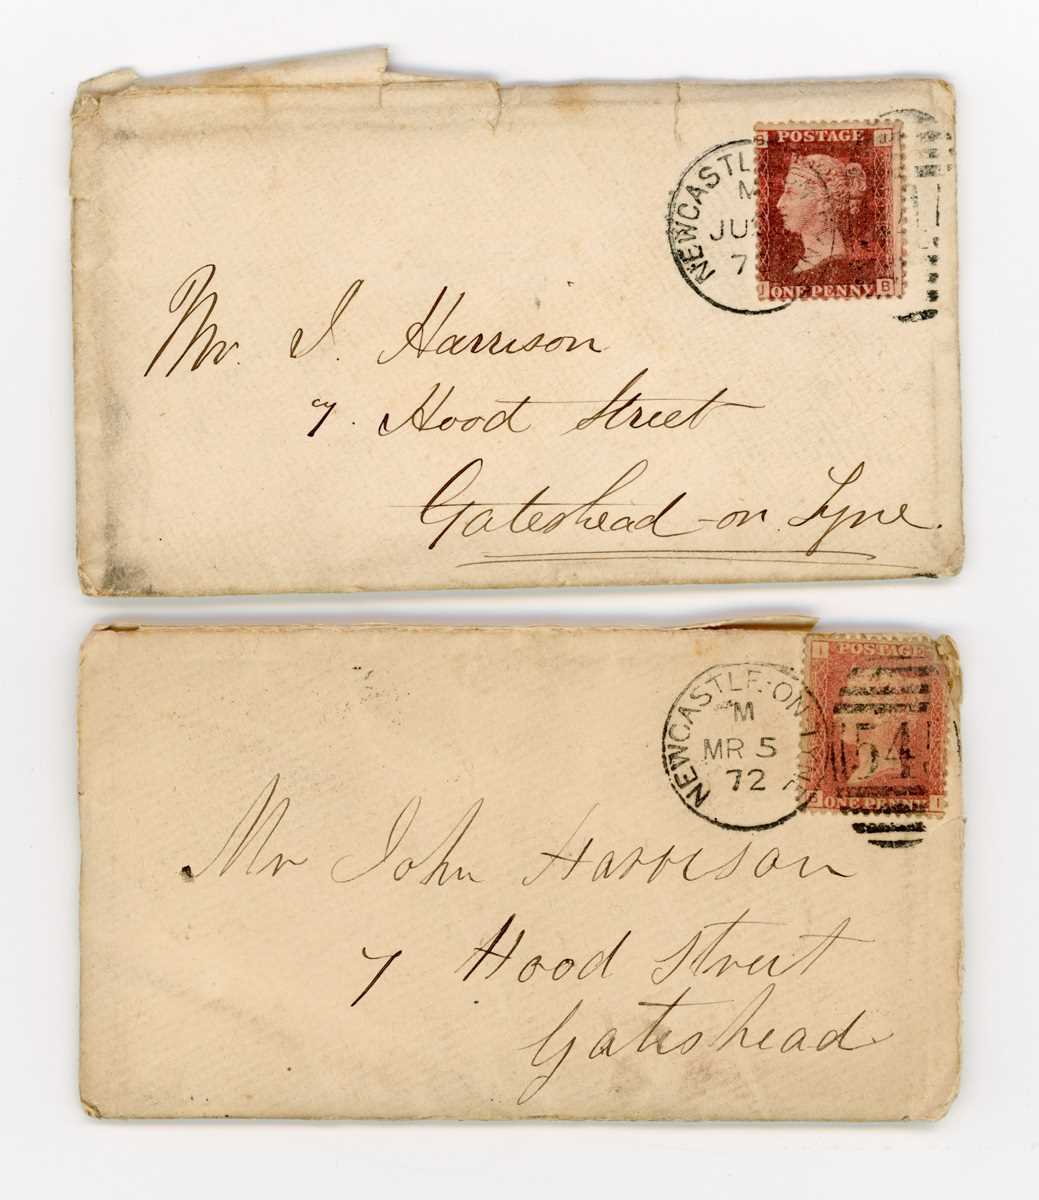 POSTAGE
ONE PENNY
NEWCASTLE
M
7
Mr. J. Harrison
7. Hood Street
Gateshead-on Tyne.
POSTAGE
ONE PENNY
NEWCASTLE-ON-TYNE
M
MR 5
72
541
Mr John Harrison
7 Hood Street
Gateshead